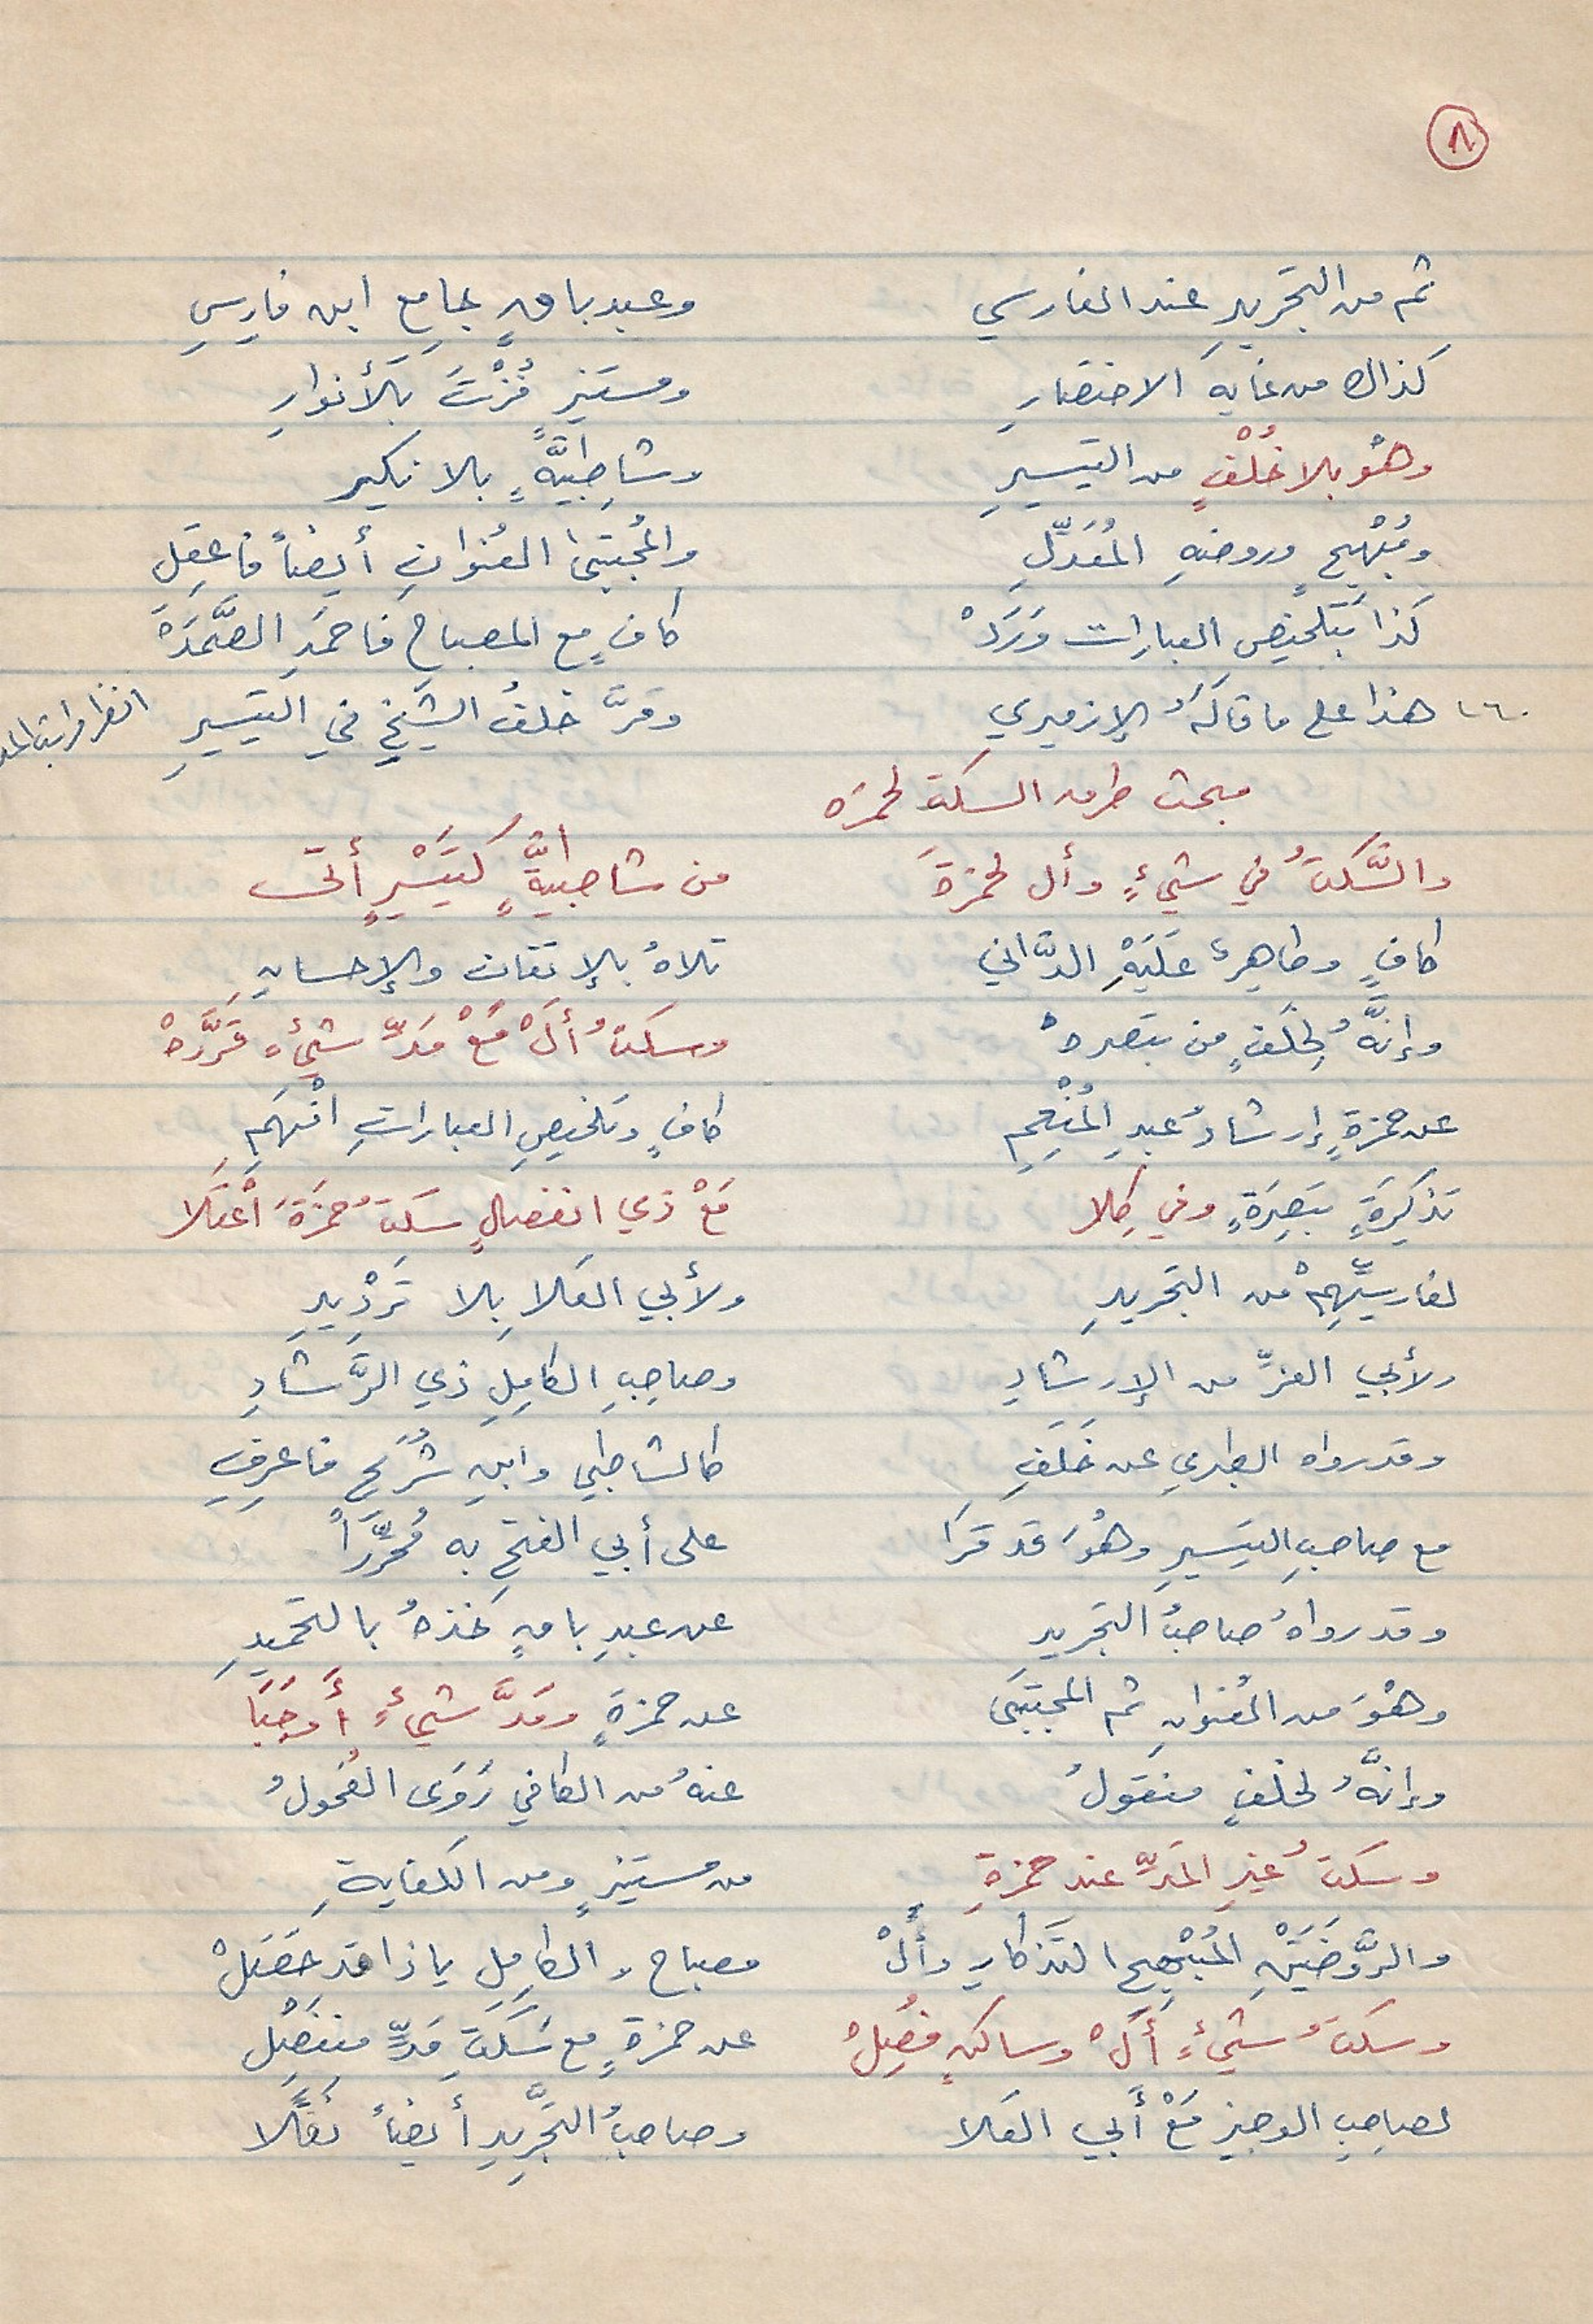 ٨
ثم من التجريدِ عند الفارسي وعبد باقٍ جامعِ ابن فارِسِ
كذاك من غاية الاختصارِ ومستنيرٍ فُزْتَ بالأنوارِ
وهْو بلا خُلْفٍ من التيسيرِ وشاطِبيَّةٍ بلا نكير
ومُبْهِجٍ وروضةِ المُعَدّلِ والمُجتبىٰ العُنوانِ أيضاً فاعقِلِ
كذا بتَلخيص العبارات وَرَدْ كافٍ مع المصباحِ فاحمَدِ الصَّمَدَ
١٦٠ هذا على ما قاله الإزميري ومَرَّ خلفُ الشيخِ في التيسيرِ انظر
مبحث طرق السكت لحمزه
والسَّكتُ في شيءٍ وأل لحمزةَ من شاطبيةٍ كتيسيرٍ أتت
كافٍ وطاهرٌ عَلَيْهِ الدَّاني تلاهُ بالإتقان والإحسانِ
وإنَّهُ لِخَلَفٍ من تبصرهْ وسكتُ ألْ مَعْ مَدِّ شيْءٍ قَرَّرهْ
عن حمزةٍ إرشادُ عبدِ المُنْعِمِ كافٍ وتلخيصِ العباراتِ افْهَمِ
تذكِرَةٍ تبصِرَةٍ وفي كِلا مَعْ ذي انفصالٍ سكتُ حمزَةَ اعْتَلا
لفارسيِّهِمْ من التجريدِ ولأبي العَلا بلا تَرْديدِ
ولأبي العزِّ من الإرشادِ وصاحِبِ الكامِلِ ذي الرَّشَادِ
وقد رواه الطبري عن خَلَفِ كالشاطبي وابنِ شُرَيحٍ فاعرِفِ
مع صاحبِ التيسيرِ وهُوَ قد قَرَا على أبي الفتحِ به مُحَرَّراً
وقد رواهُ صاحبُ التجريد عن عبدِ باقٍ خذهُ بالتحميدِ
وهْوَ من العُنوانِ ثم المجتبَى عن حمزةٍ ومَدَّ شيءٍ أوجَبَا
وإنَّهُ لخلفٍ منقولُ عنهُ من الكافي رَوَى الفُحولُ
وسكتُ غيرِ المَدِّ عند حمزةِ من مستنيرٍ ومن الكفايةِ
والرَّوضَتَيْنِ المُبْهِجِ التَذكارِ وألْ مصباحِ والكامِلِ يا ذا قد حَصَلْ
وسكتُ شيءٍ ألْ وساكنٍ فُصِلْ عن حمزةٍ مع سَكتِ مَدٍّ منفَصِل
لصاحِبِ الوجيزِ مَعْ أبي العَلا وصاحبُ التجريدِ أيضاً نقَلا